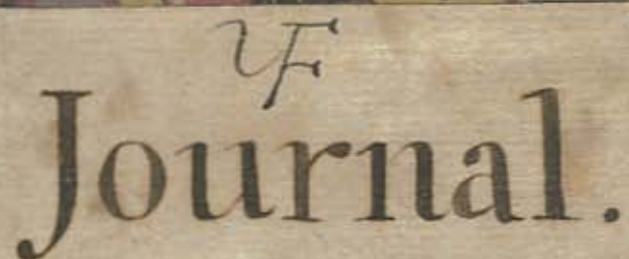 F
Journal.